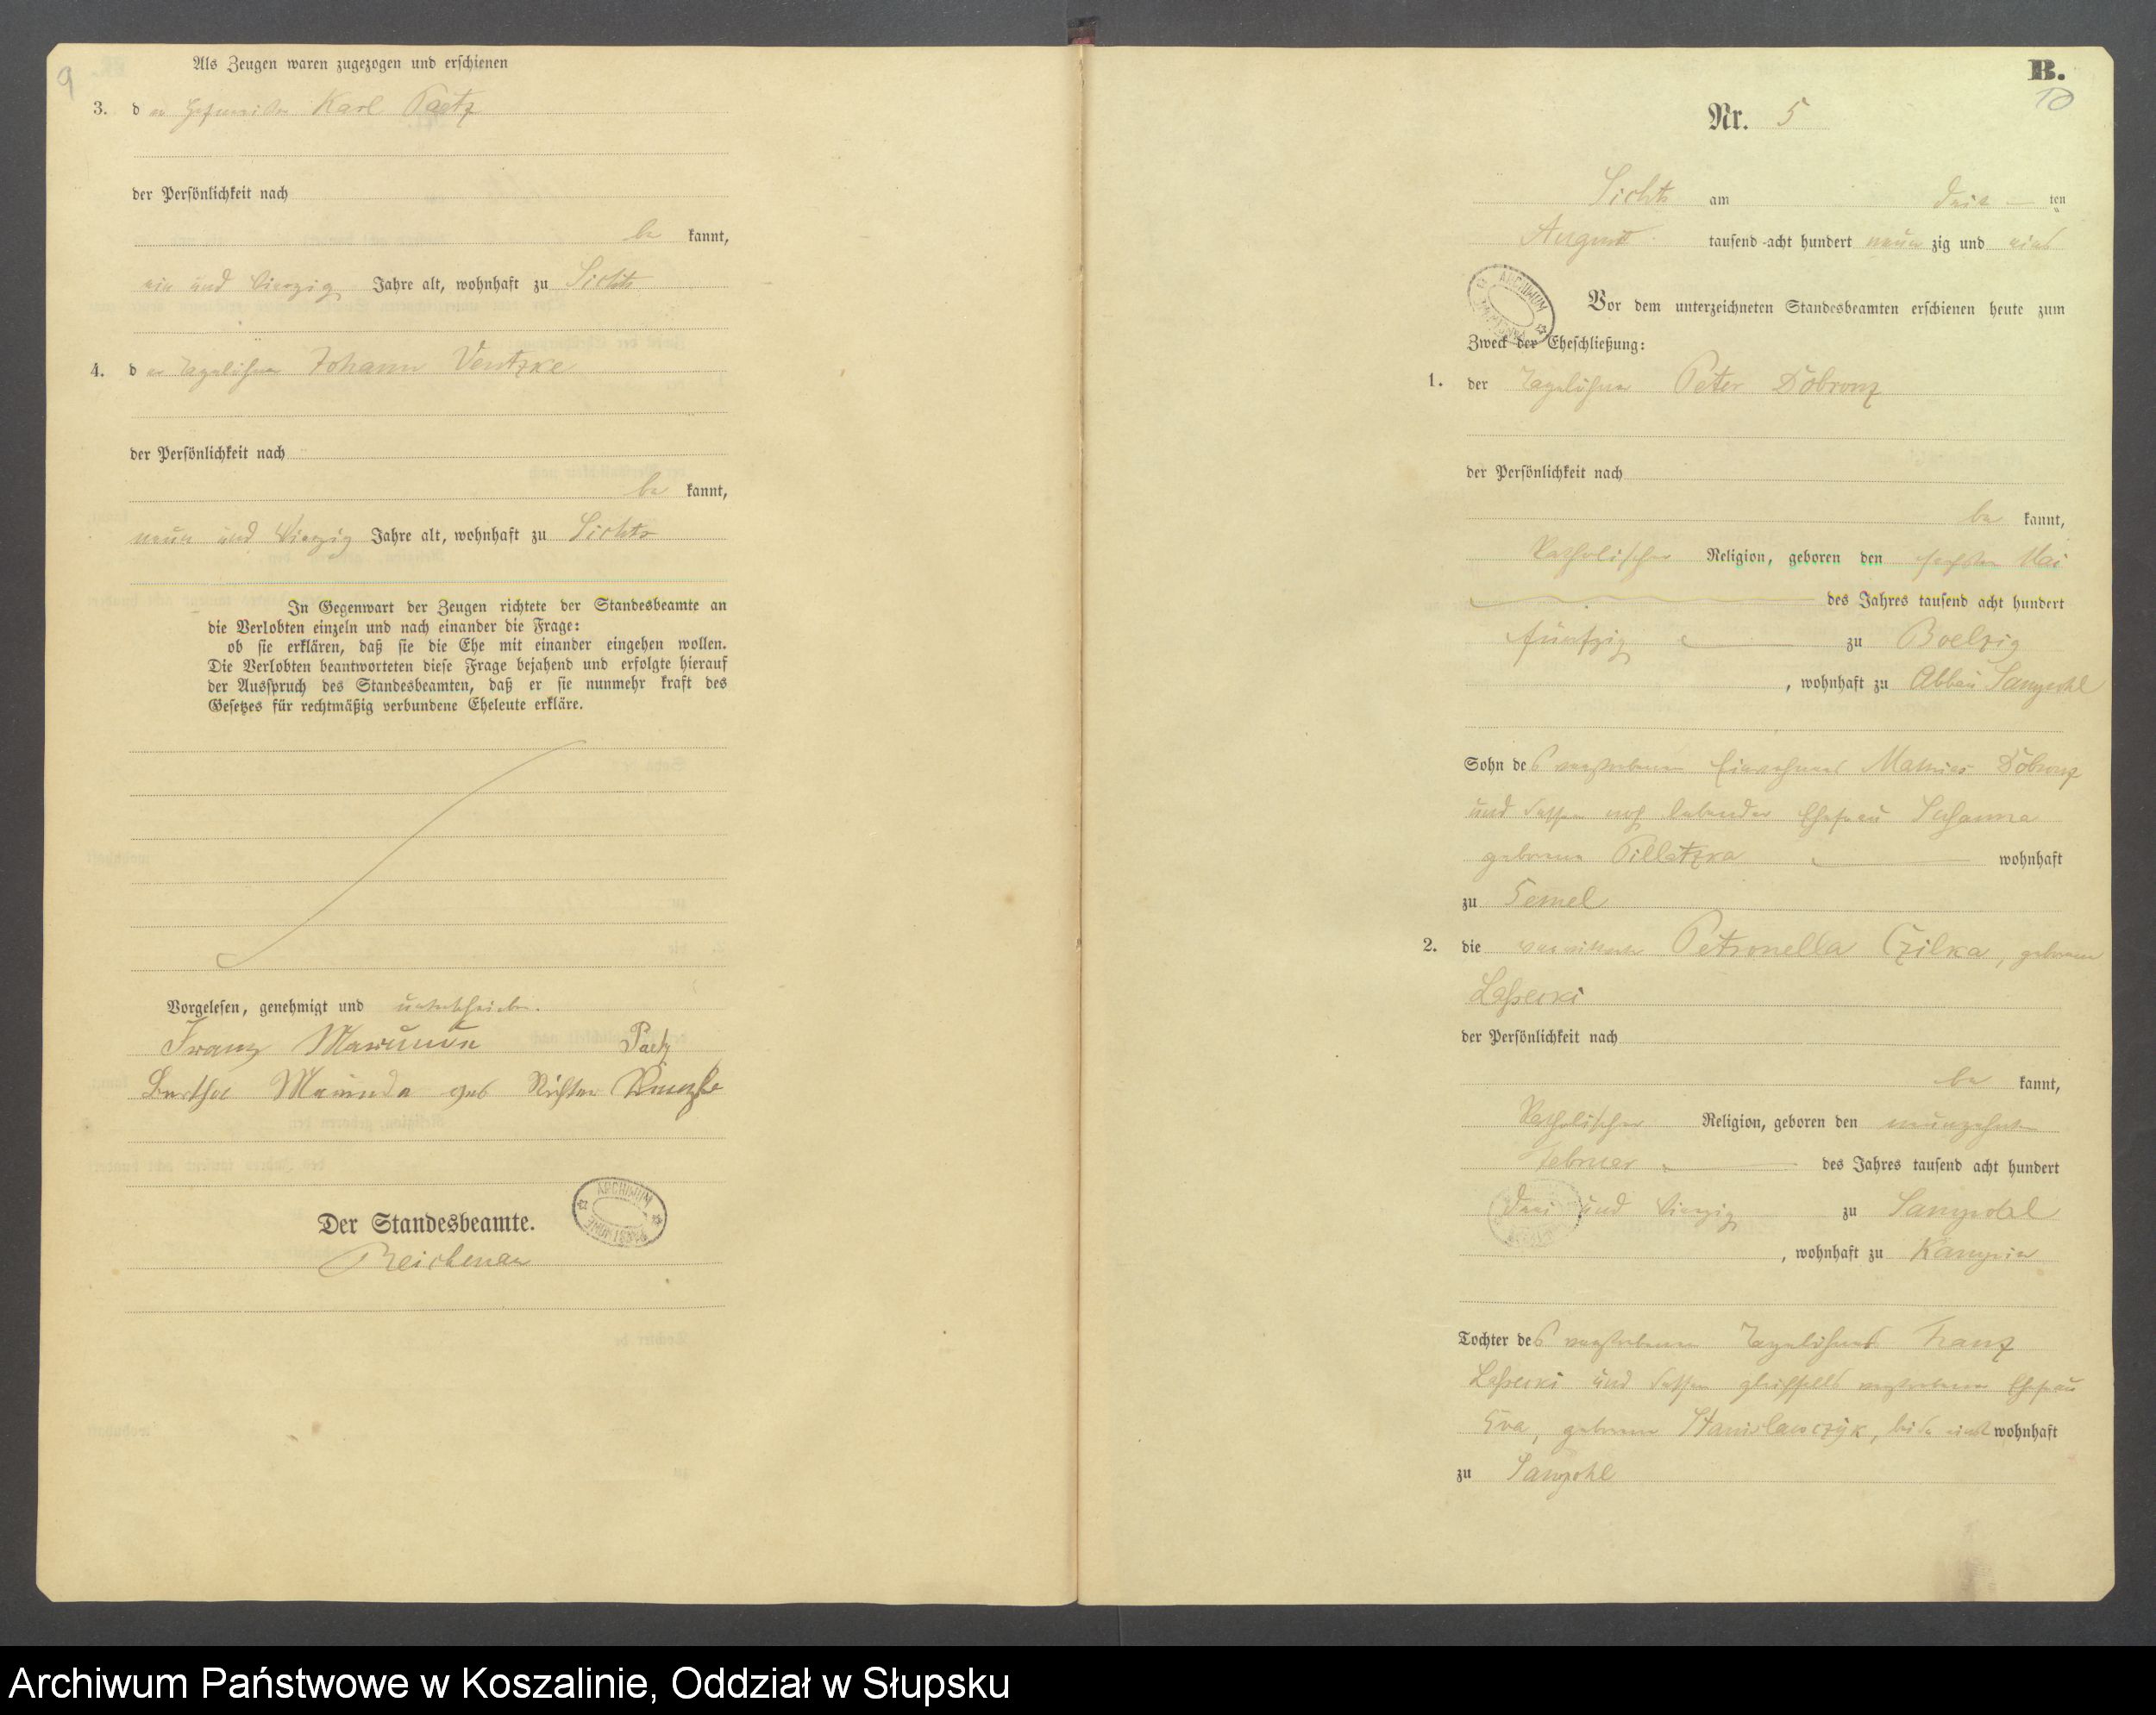 9
Als Zeugen waren zugezogen und erschienen
3. der Karl Paetz
der Persönlichkeit nach
be kannt,
ein und vierzig Jahre alt, wohnhaft zu Lichts
4. der Tagelöhner Johann Ventzke
der Persönlichkeit nach
be kannt,
neun und vierzig Jahre alt, wohnhaft zu Lichts
In Gegenwart der Zeugen richtete der Standesbeamte an
die Verlobten einzeln und nach einander die Frage:
ob sie erklären, daß sie die Ehe mit einander eingehen wollen.
Die Verlobten beantworteten diese Frage bejahend und erfolgte hierauf
der Ausspruch des Standesbeamten, daß er sie nunmehr kraft des
Gesetzes für rechtmäßig verbundene Eheleute erkläre.
Vorgelesen, genehmigt und unterschrieben.
Franz Paetz
Bertha geb Richter
Der Standesbeamte.
ARCHIWUM
Reichenau
B.
10
Nr. 5
am drit ten
August tausend acht hundert neun zig und eins
ARCHIWUM
Vor dem unterzeichneten Standesbeamten erschienen heute zum
Zweck der Eheschließung:
1. der Tagelöhner Peter Dobronz
der Persönlichkeit nach
be kannt,
katholischer Religion, geboren den sechsten Mai
des Jahres tausend acht hundert
fünfzig zu Boelzig
, wohnhaft zu Abbau Sampohl
Sohn des verstorbenen Einwohners Mathias Dobronz
und dessen noch lebender Ehefrau Susanna
geborene Pillatzka wohnhaft
zu Semel
2. die verwittwete Petronella Czilka, geborene
Lassecki
der Persönlichkeit nach
be kannt,
katholischer Religion, geboren den neunzehnten
Februar des Jahres tausend acht hundert
drei und vierzig zu Sampohl
, wohnhaft zu Kampin
Tochter des verstorbenen Tagelöhners Franz
Lassecki und dessen gleichfalls verstorbene Ehefrau
Eva, geborene Stanislawczyk, beide einst wohnhaft
zu Sampohl
Archiwum Państwowe w Koszalinie, Oddział w Słupsku